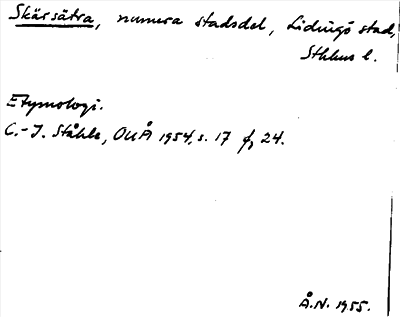 Skärsätra, numera stadsdel, Lidingö stad,
Sthlms l.
Etymologi.
C.-I. Ståhle, OUÅ 1954, s. 17 f, 24.
Å.N. 1955.